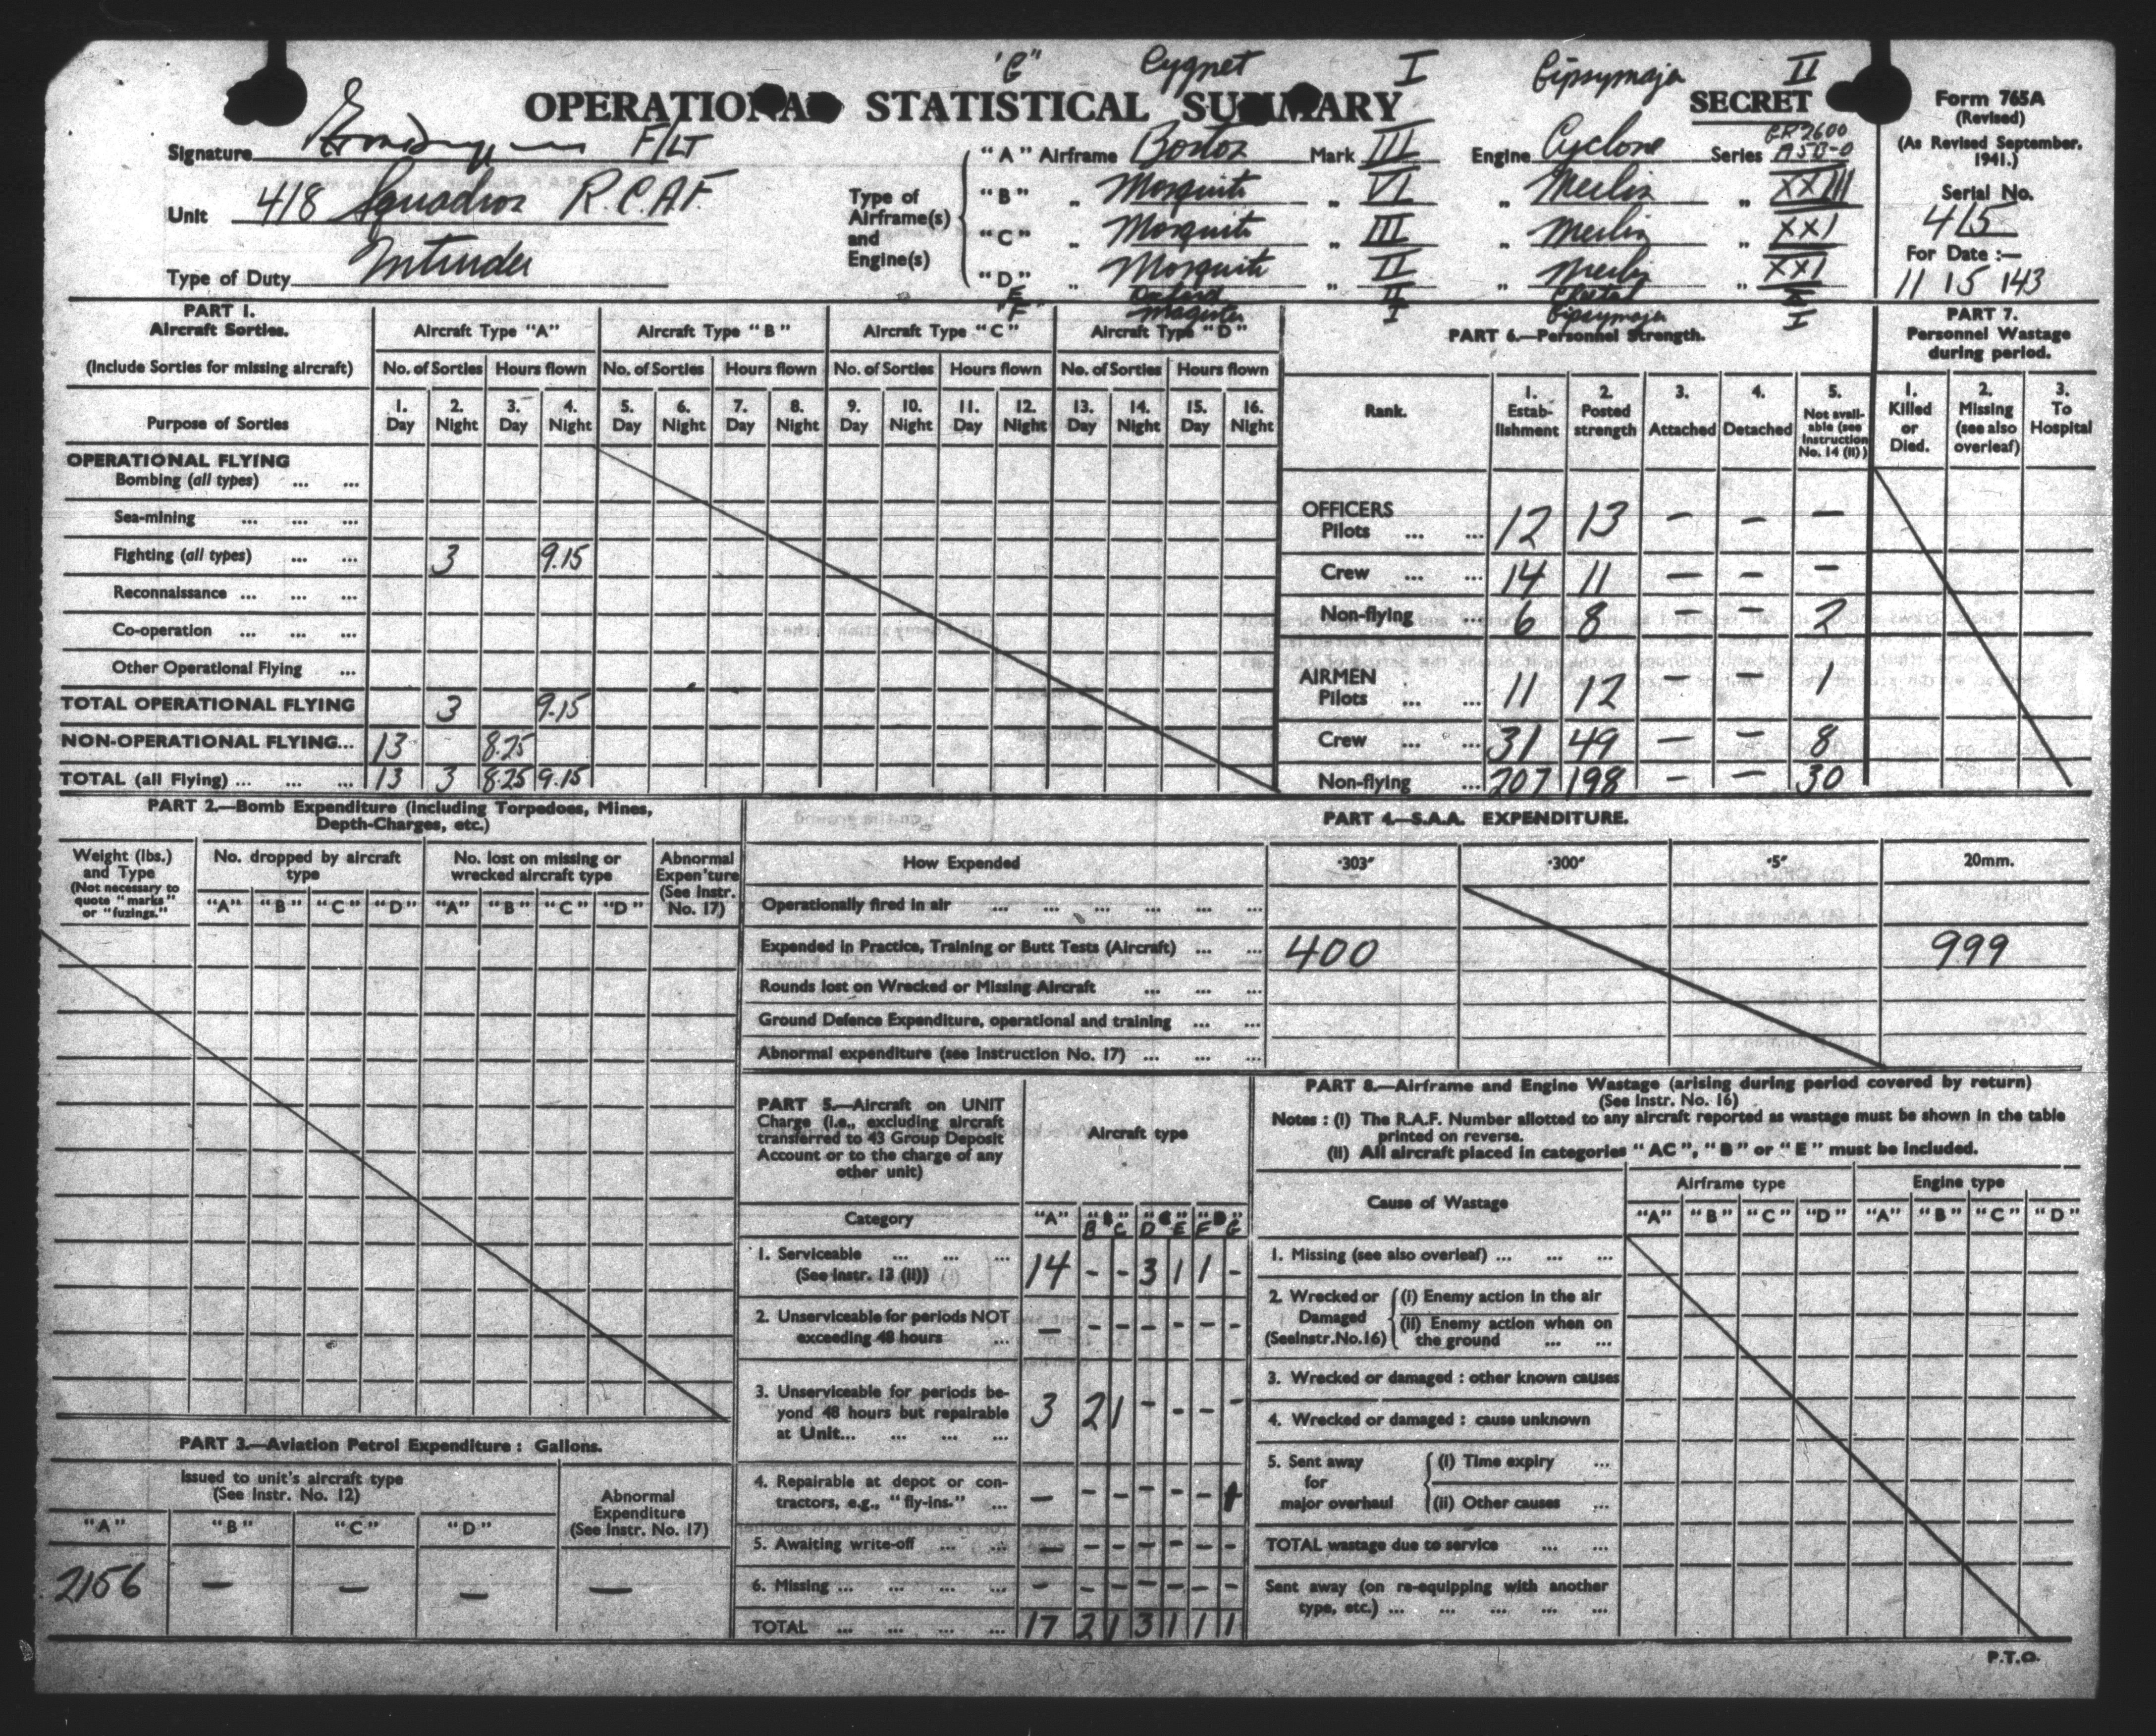 "G" Cygnet I Gipsymajor II
OPERATIONAL STATISTICAL SUMMARY
SECRET
Form 765A
(Revised)
(As Revised September, 1941.)
Serial No.
415
For Date :—
11 15 143
Signature F/LT
Unit 418 Squadron R.C.A.F.
Type of Duty Intruder
Type of Airframe(s) and Engine(s)
"A" Airframe Boston Mark III Engine Cyclone Series GR2600 A5B-0
"B" „ Mosquito „ VI „ Merlin „ XXIII
"C" „ Mosquito „ III „ Merlin „ XXI
"D" „ Mosquito „ II „ Merlin „ XXI
E Oxford II Cheetah X
"F" Magister I Gipsymajor I
PART 1.
Aircraft Sorties.
(Include Sorties for missing aircraft)
Aircraft Type "A" Aircraft Type "B" Aircraft Type "C" Aircraft Type "D"
No. of Sorties Hours flown No. of Sorties Hours flown No. of Sorties Hours flown No. of Sorties Hours flown
Purpose of Sorties
1. Day 2. Night 3. Day 4. Night 5. Day 6. Night 7. Day 8. Night 9. Day 10. Night 11. Day 12. Night 13. Day 14. Night 15. Day 16. Night
OPERATIONAL FLYING
Bombing (all types) ... ...
Sea-mining ... ... ...
Fighting (all types) ... ... 3 9.15
Reconnaissance ... ... ...
Co-operation ... ... ...
Other Operational Flying ...
TOTAL OPERATIONAL FLYING 3 9.15
NON-OPERATIONAL FLYING... 13 8.25
TOTAL (all Flying) ... ... ... 13 3 8.25 9.15
PART 6.—Personnel Strength.
Rank. 1. Establishment 2. Posted strength 3. Attached 4. Detached 5. Not available (see Instruction No. 14 (II))
OFFICERS
Pilots ... ... 12 13 — — —
Crew ... ... 14 11 — — —
Non-flying ... 6 8 — — 2
AIRMEN
Pilots ... ... 11 12 — — 1
Crew ... ... 31 49 — — 8
Non-flying ... 207 198 — — 30
PART 7.
Personnel Wastage
during period.
1. Killed or Died. 2. Missing (see also overleaf) 3. To Hospital
PART 2.—Bomb Expenditure (including Torpedoes, Mines,
Depth-Charges, etc.)
Weight (lbs.) and Type (Not necessary to quote "marks" or "fuzings.")
No. dropped by aircraft type
No. lost on missing or wrecked aircraft type
Abnormal Expen'ture (See Instr. No. 17)
"A" "B" "C" "D" "A" "B" "C" "D"
PART 4.—S.A.A. EXPENDITURE.
How Expended ·303" ·300" ·5" 20mm.
Operationally fired in air ... ... ... ... ... ...
Expended in Practice, Training or Butt Tests (Aircraft) ... ... 400 999
Rounds lost on Wrecked or Missing Aircraft ... ... ...
Ground Defence Expenditure, operational and training ... ...
Abnormal expenditure (see Instruction No. 17) ... ... ...
PART 3.—Aviation Petrol Expenditure : Gallons.
Issued to unit's aircraft type
(See Instr. No. 12)
Abnormal Expenditure (See Instr. No. 17)
"A" "B" "C" "D"
2156 — — — —
PART 5.—Aircraft on UNIT
Charge (i.e., excluding aircraft
transferred to 43 Group Deposit
Account or to the charge of any
other unit)
Aircraft type
Category "A" "B" C "D" E "F" G
1. Serviceable ... ... ...
(See Instr. 13 (II)) 14 - - 3 1 1 -
2. Unserviceable for periods NOT
exceeding 48 hours ... — - - - - - -
3. Unserviceable for periods be-
yond 48 hours but repairable
at Unit... ... ... ... 3 2 1 - - - -
4. Repairable at depot or con-
tractors, e.g., "fly-ins." ... — - - - - - 1
5. Awaiting write-off ... ... — - - - - - -
6. Missing ... ... ... ... - - - - - - -
TOTAL ... ... ... ... 17 2 1 3 1 1 1
PART 8.—Airframe and Engine Wastage (arising during period covered by return)
(See Instr. No. 16)
Notes : (i) The R.A.F. Number allotted to any aircraft reported as wastage must be shown in the table
printed on reverse.
(II) All aircraft placed in categories "AC", "B" or "E" must be included.
Cause of Wastage Airframe type Engine type
"A" "B" "C" "D" "A" "B" "C" "D"
1. Missing (see also overleaf) ... ... ...
2. Wrecked or Damaged (SeeInstr.No.16)
(i) Enemy action in the air
(ii) Enemy action when on the ground ... ...
3. Wrecked or damaged : other known causes
4. Wrecked or damaged : cause unknown
5. Sent away for major overhaul
(i) Time expiry ...
(ii) Other causes ...
TOTAL wastage due to service ... ...
Sent away (on re-equipping with another
type, etc.) ... ... ... ... ...
P.T.O.